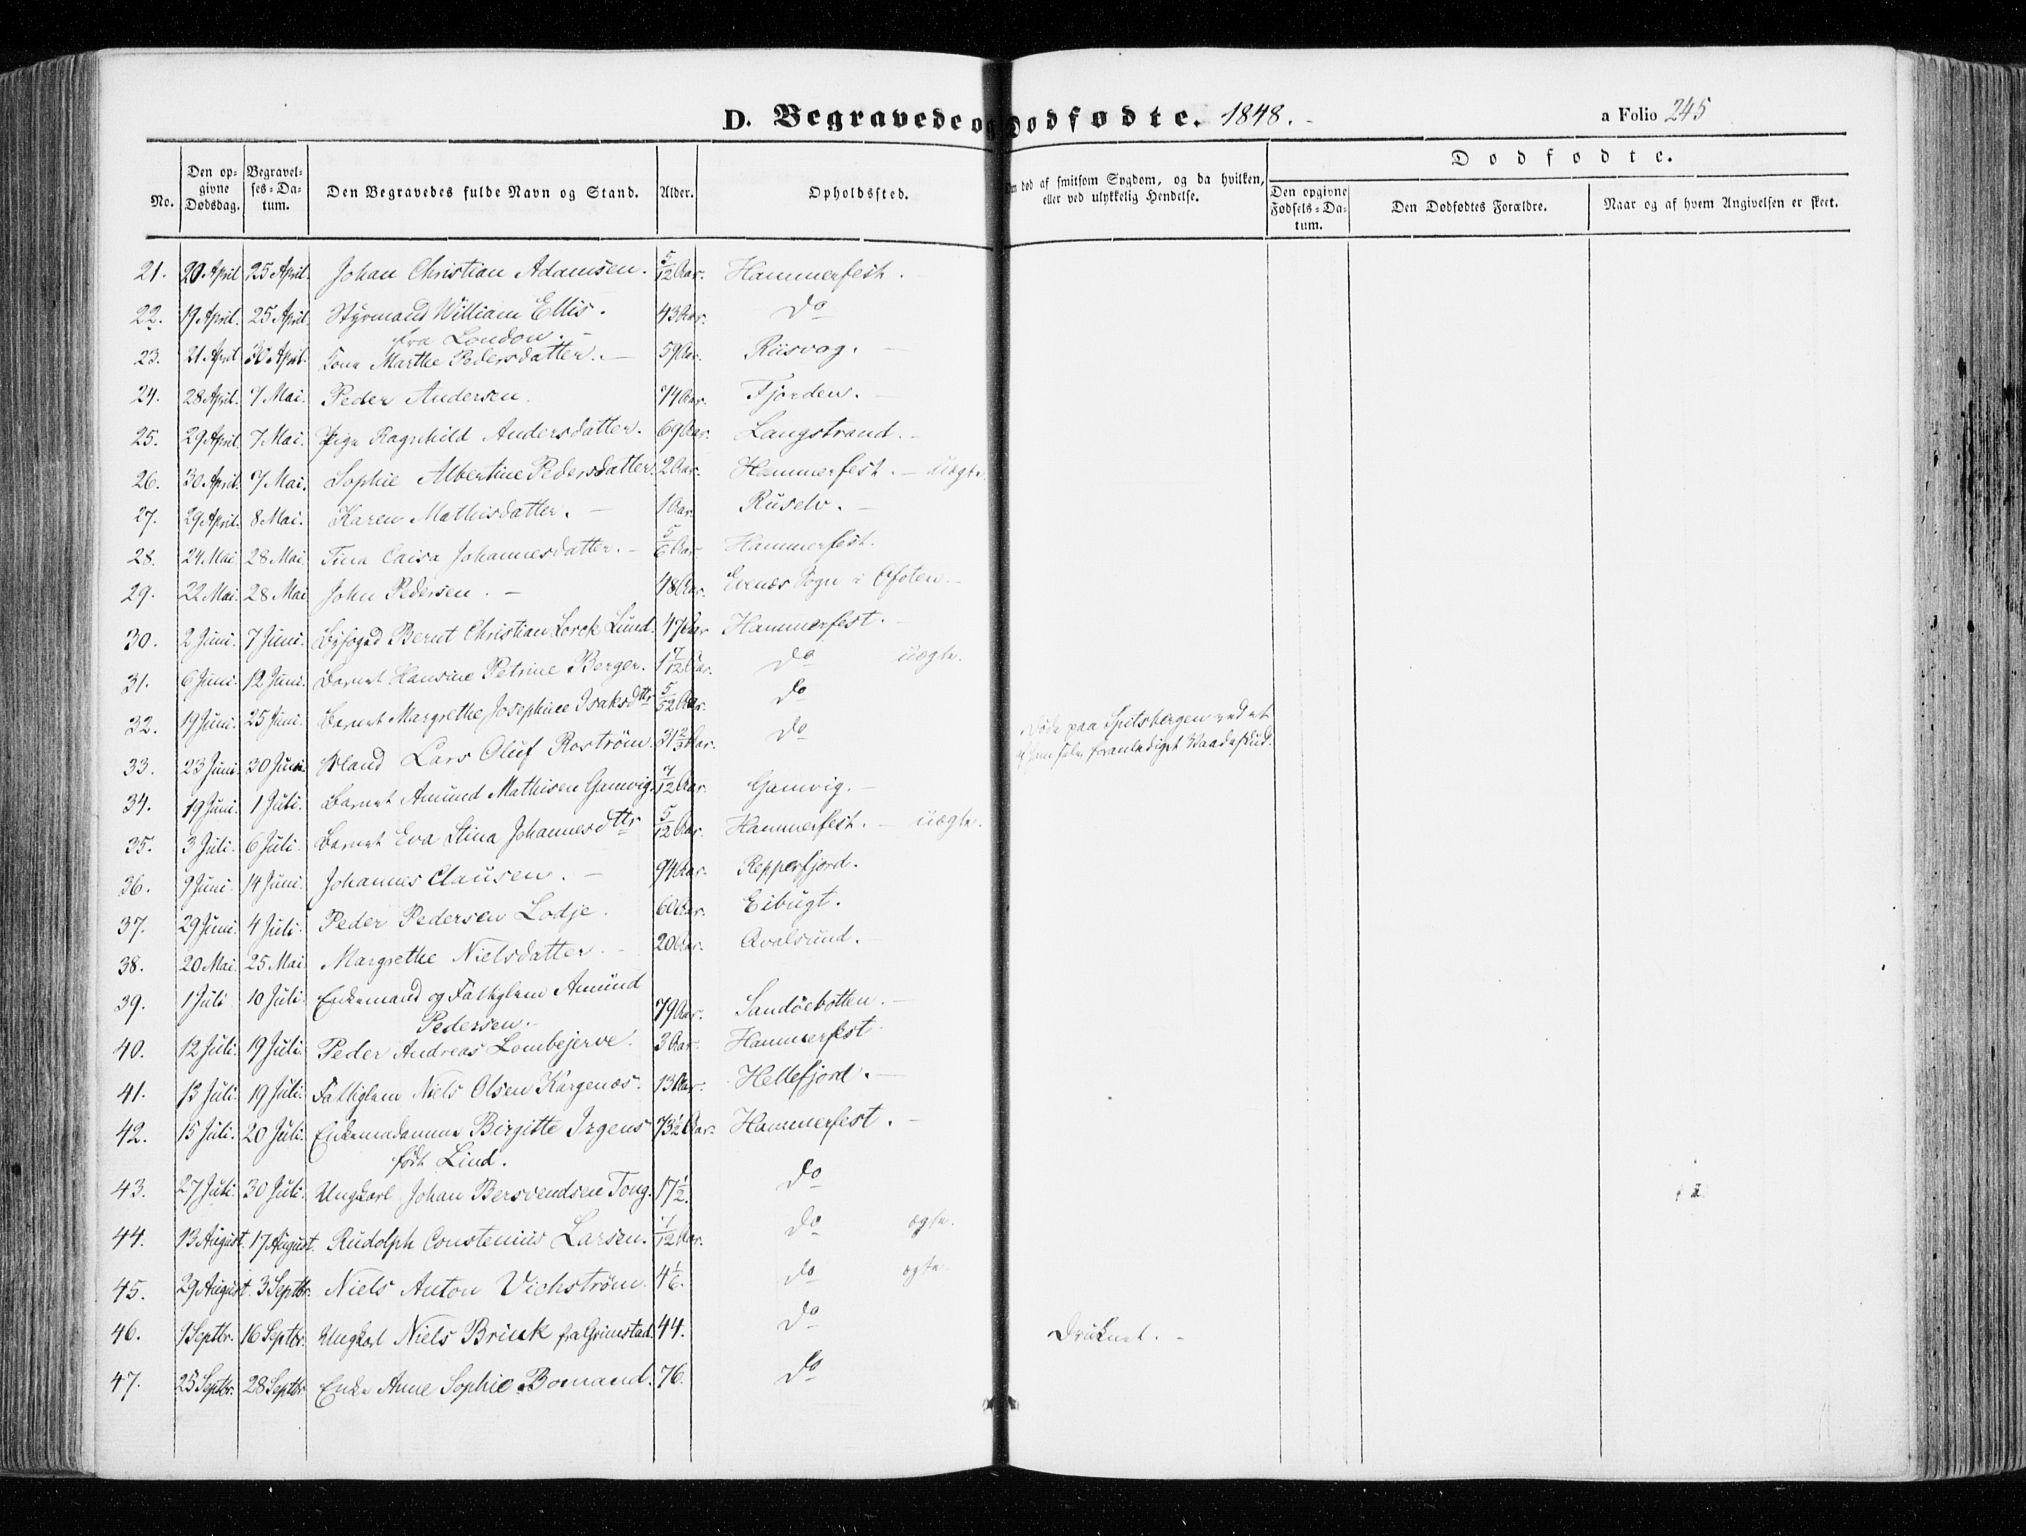 D. Begravede og Dødfødte. 1848. a Folio 245
Dødfødte.
No. Den opgivne Dødsdag. Begravelses-Datum. Den Begravedes fulde Navn og Stand. Alder. Opholdssted. død af smitsom Sygdom, og da hvilken, eller ved ulykkelig Hendelse. Den opgivne Fødsels-Datum. Den Dødfødtes Forældre. Naar og af hvem Angivelsen er skeet.
21. 20 April 25 April. Johan Christian Adamsen. 5/12 Aar. Hammerfest.
22. 19 April. 25 April. Styrmand William Ellis. 43 Aar. do
fra London.
23. 21 April 30 April. Kone Marthe Pedersdatter. 59 Aar. Riisvag.
24. 28 April. 7 Mai. Peder Andersen. 74 Aar. Fjorden.
25. 29 April 7 Mai. Pige Ragnhild Andersdatter. 69 Aar. Langstrand.
26. 30 April. 7 Mai. Sophie Albertine Pedersdatter. 2 Aar. Hammerfest. uægte.
27. 29 April. 8 Mai. Karen Mathisdatter. 1 Aar. Rüselv.
28. 24 Mai 28 Mai. Tina Caisa Johannesdatter. 5/6 Aar Hammerfest.
29. 22 Mai. 28 Mai John Pedersen. 48 Aar. Evenæs Sogn i Ofoten.
30. 2 Juni. 7 Juni. Byfoged Bernt Christian Lorck Lund. 47 Aar Hammerfest.
31. 6 Juni. 12 Juni. Barnet Hansine Petrine Berger. 1 7/12 Aar. do uægte.
32. 19 Juni. 25 Juni. Barnet Margrethe Josephine Isaksdttr 5/52 Aar. do
33. 23 Juni. 30 Juni. Lars Oluf Roström 31 2/3 Aar. do Døde paa Spitsbergen ved et
foranlediget Vaadeskud.
34. 19 Juni. 1 Juli. Barnet Amund Mathisen Gamvig. 7/12 Aar. Gamvig.
35. 3 Juli. 6 Juli. Barnet Eva Stina Johannesdttr 5/12 Aar. Hammerfest. uægte.
36. 9 Juni. 14 Juni. Johannes Clausen. 94 Aar. Repperfjord.
37. 29 Juni. 4 Juli. Peder Pedersen Lodje. 60 Aar. Eibugt.
38. 20 Mai. 25 Mai Margrethe Nielsdatter. 20 Aar. Qvalsund.
39. 1 Juli 10 Juli. Enkemand og Fattiglem Amund
Pedersen. 79 Aar. Sandöebotten.
40. 12 Juli. 19 Juli. Peder Andreas Lombejerve. 3 Aar. Hammerfest
41. 13 Juli. 19 Juli. Fattiglem Niels Olsen Kargenæs. 13 Aar. Hellefjord.
42. 15 Juli. 20 Juli. Enkemadamme Birgitte Irgens 73½ Aar. Hammerfest.
født Lind.
43. 27 Juli. 30 Juli. Ungkarl Johan Bersvendsen Tong. 17½. do
44. 13 August. 17 August. Rudolph Constenius Larsen. 1/12 Aar. do ægte.
45. 29 August. 3 Septbr. Niels Anton Vichström. 4 1/6. do ægte.
46. 9 Septbr. 16 Septbr. Ungkarl Niels Brink fra Grimstad. 44. do Druknet.
47. 25 Septbr. 28 Septbr Enke Anne Sophie Bomand. 76. do